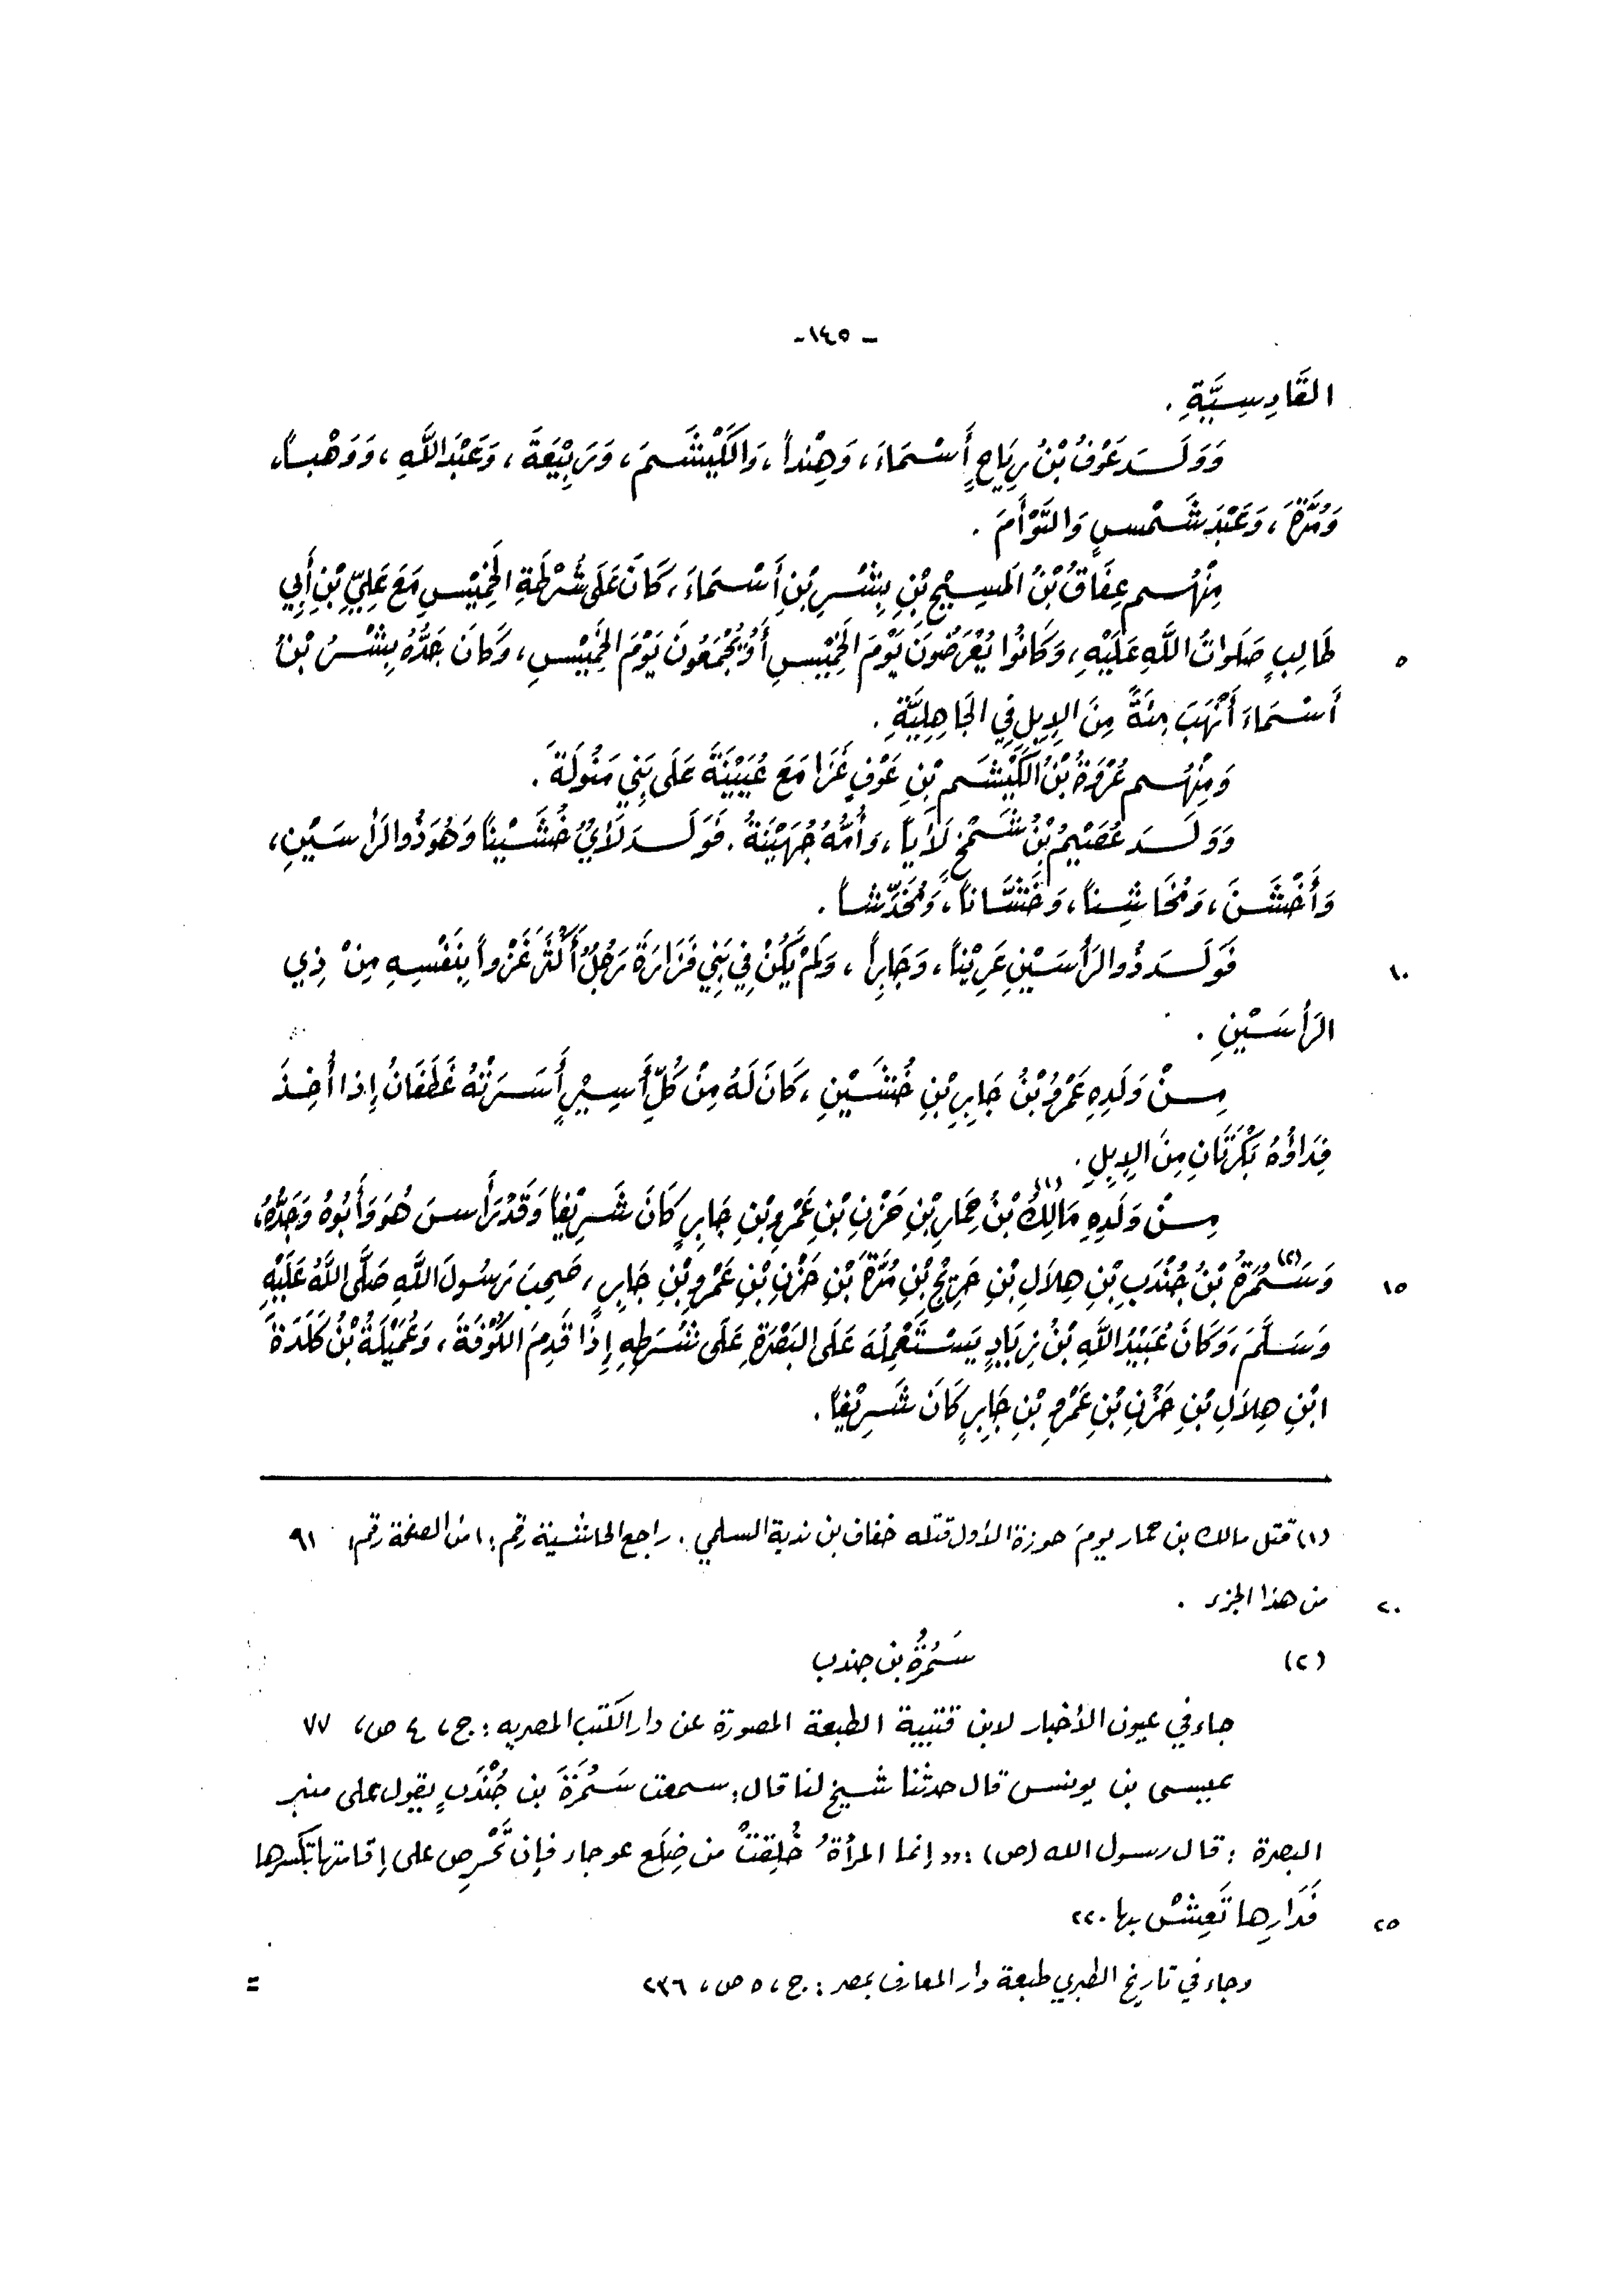 - ١٤٥ -
القَادِسِيَّةِ .
وَوَلَـدَ عَوْفُ بْنُ رِيَاحٍ أَسْمَاءَ، وَهِنْداً، وَالكَيْشَـمَ، وَرَبِيْعَةَ، وَعَبْدَ اللَّهِ، وَوَهْبـاً،
وَمُرَّةَ، وَعَبْدَ شَـمْسٍ وَالتَّوْأَمَ .
مِنْهُـم عِفَاقُ بْنُ المَسِـيْحِ بْنِ بِشْـرِ بْنِ أَسْـمَاءَ، كَانَ عَلَى شُـرْطَةِ الخَمِيْسِ مَعَ عَلِيِّ بْنِ أَبِي
٥ طَالِبٍ صَلَوَاتُ اللَّهِ عَلَيْهِ، وَكَانُوا يُعْرَضُونَ يَوْمَ الخَمِيْسِ أَوْ يُجْمَعُونَ يَوْمَ الخَمِيْسِ، وَكَانَ جَدُّهُ بِشْـرُ بْنُ
أَسْـمَاءَ أَنْهَبَ مِئَةً مِنَ الإِبِلِ فِي الجَاهِلِيَّةِ .
وَمِنْهُـم عُرْوَةُ بْنُ الكَيْشَـمِ بْنِ عَوْفٍ غَزَا مَعَ عُيَيْنَةَ عَلَى بَنِي مَنُولَةَ .
وَوَلَـدَ عُصَيْمُ بْنُ شَـمْخٍ لَأْيَاً، وَأُمُّهُ جُهَيْنَةُ. فَوَلَـدَ لَأْيٌ خُشَـيْناً وَهُوَ ذُو الرَأْسَـيْنِ،
وَأَخْشَـنَ، وَمُخَاشِـناً، وَخَشَّـاناً، وَمُخَدِّشـاً .
١٠ فَوَلَـدَ ذُو الرَأْسَـيْنِ عَرِيْناً، وَجَابِراً، وَلَمْ يَكُنْ فِي بَنِي فَزَارَةَ رَجُلٌ أَكْثَرَ غَزْواً بِنَفْسِـهِ مِنْ ذِي
الرَأْسَـيْنِ .
مِـنْ وَلَدِهِ عَمْرُو بْنُ جَابِرِ بْنِ خُشَـيْنٍ، كَانَ لَهُ مِنْ كُلِّ أَسِـيْرٍ أَسَـرَتْهُ غَطَفَانُ إِذا أُخِـذَ
فِدَاؤُهُ بَكْرَتَانِ مِنَ الإِبِلِ .
مِـنْ وَلَدِهِ مَالِكُ(١) بْنُ حِمَارِ بْنِ حَزْنِ بْنِ عَمْرِو بْنِ جَابِرٍ كَانَ شَـرِيْفاً وَقَدْ رَأَسَ هُوَ وَأَبُوهُ وَجَدُّهُ،
١٥ وَسَـمُرَةُ(٢) بْنُ جُنْدَبِ بْنِ هِلاَلِ بْنِ حَرِيْجِ بْنِ مُرَّةَ بْنِ حَزْنِ بْنِ عَمْرِو بْنِ جَابِرٍ، صَحِبَ رَسُولَ اللَّهِ صَلَّى اللَّهُ عَلَيْهِ
وَسَـلَّمَ، وَكَانَ عُبَيْدُ اللَّهِ بْنُ زِيَادٍ يَسْـتَعْمِلُهُ عَلَى البَصْرَةِ عَلَى شُـرَطِهِ إِذَا قَدِمَ الكُوْفَةَ، وَعُمَيْلَةُ بْنُ كَلَدَةَ
ابْنِ هِلاَلِ بْنِ حَزْنِ بْنِ عَمْرِو بْنِ جَابِرٍ كَانَ شَـرِيْفاً .
(١) قتل مالك بن حمار يومَ حوزة الأول قتله خفاف بن ندبة السلمي . راجع الحاشـية رقم: ١ من الصفحة رقم: ٩١
٢٠ من هذا الجزء .
(٢) سَـمُرَةُ بن جندب
جاء في عيون الأخبار لابن قتيبة الطبعة المصورة عن دار الكتب المصريه : ج، ٤ ص، ٧٧
عيسى بن يونس قال حدثنا شـيخ لنا قال: سـمعت سَـمُرَةَ بن جُنْدَبٍ يقول على منبر
البصرة : قال رسول الله (ص) : «إنما المرأةُ خُلِقتْ من ضِلَع عوجاء فإن تَحْرِص على إقامتها تكسرها
٢٥ فَدَارِها تَعِشْ بها .»
وجاء في تاريخ الطبري طبعة دار المعارف بمصر : ج، ٥ ص، ٢٣٦ =